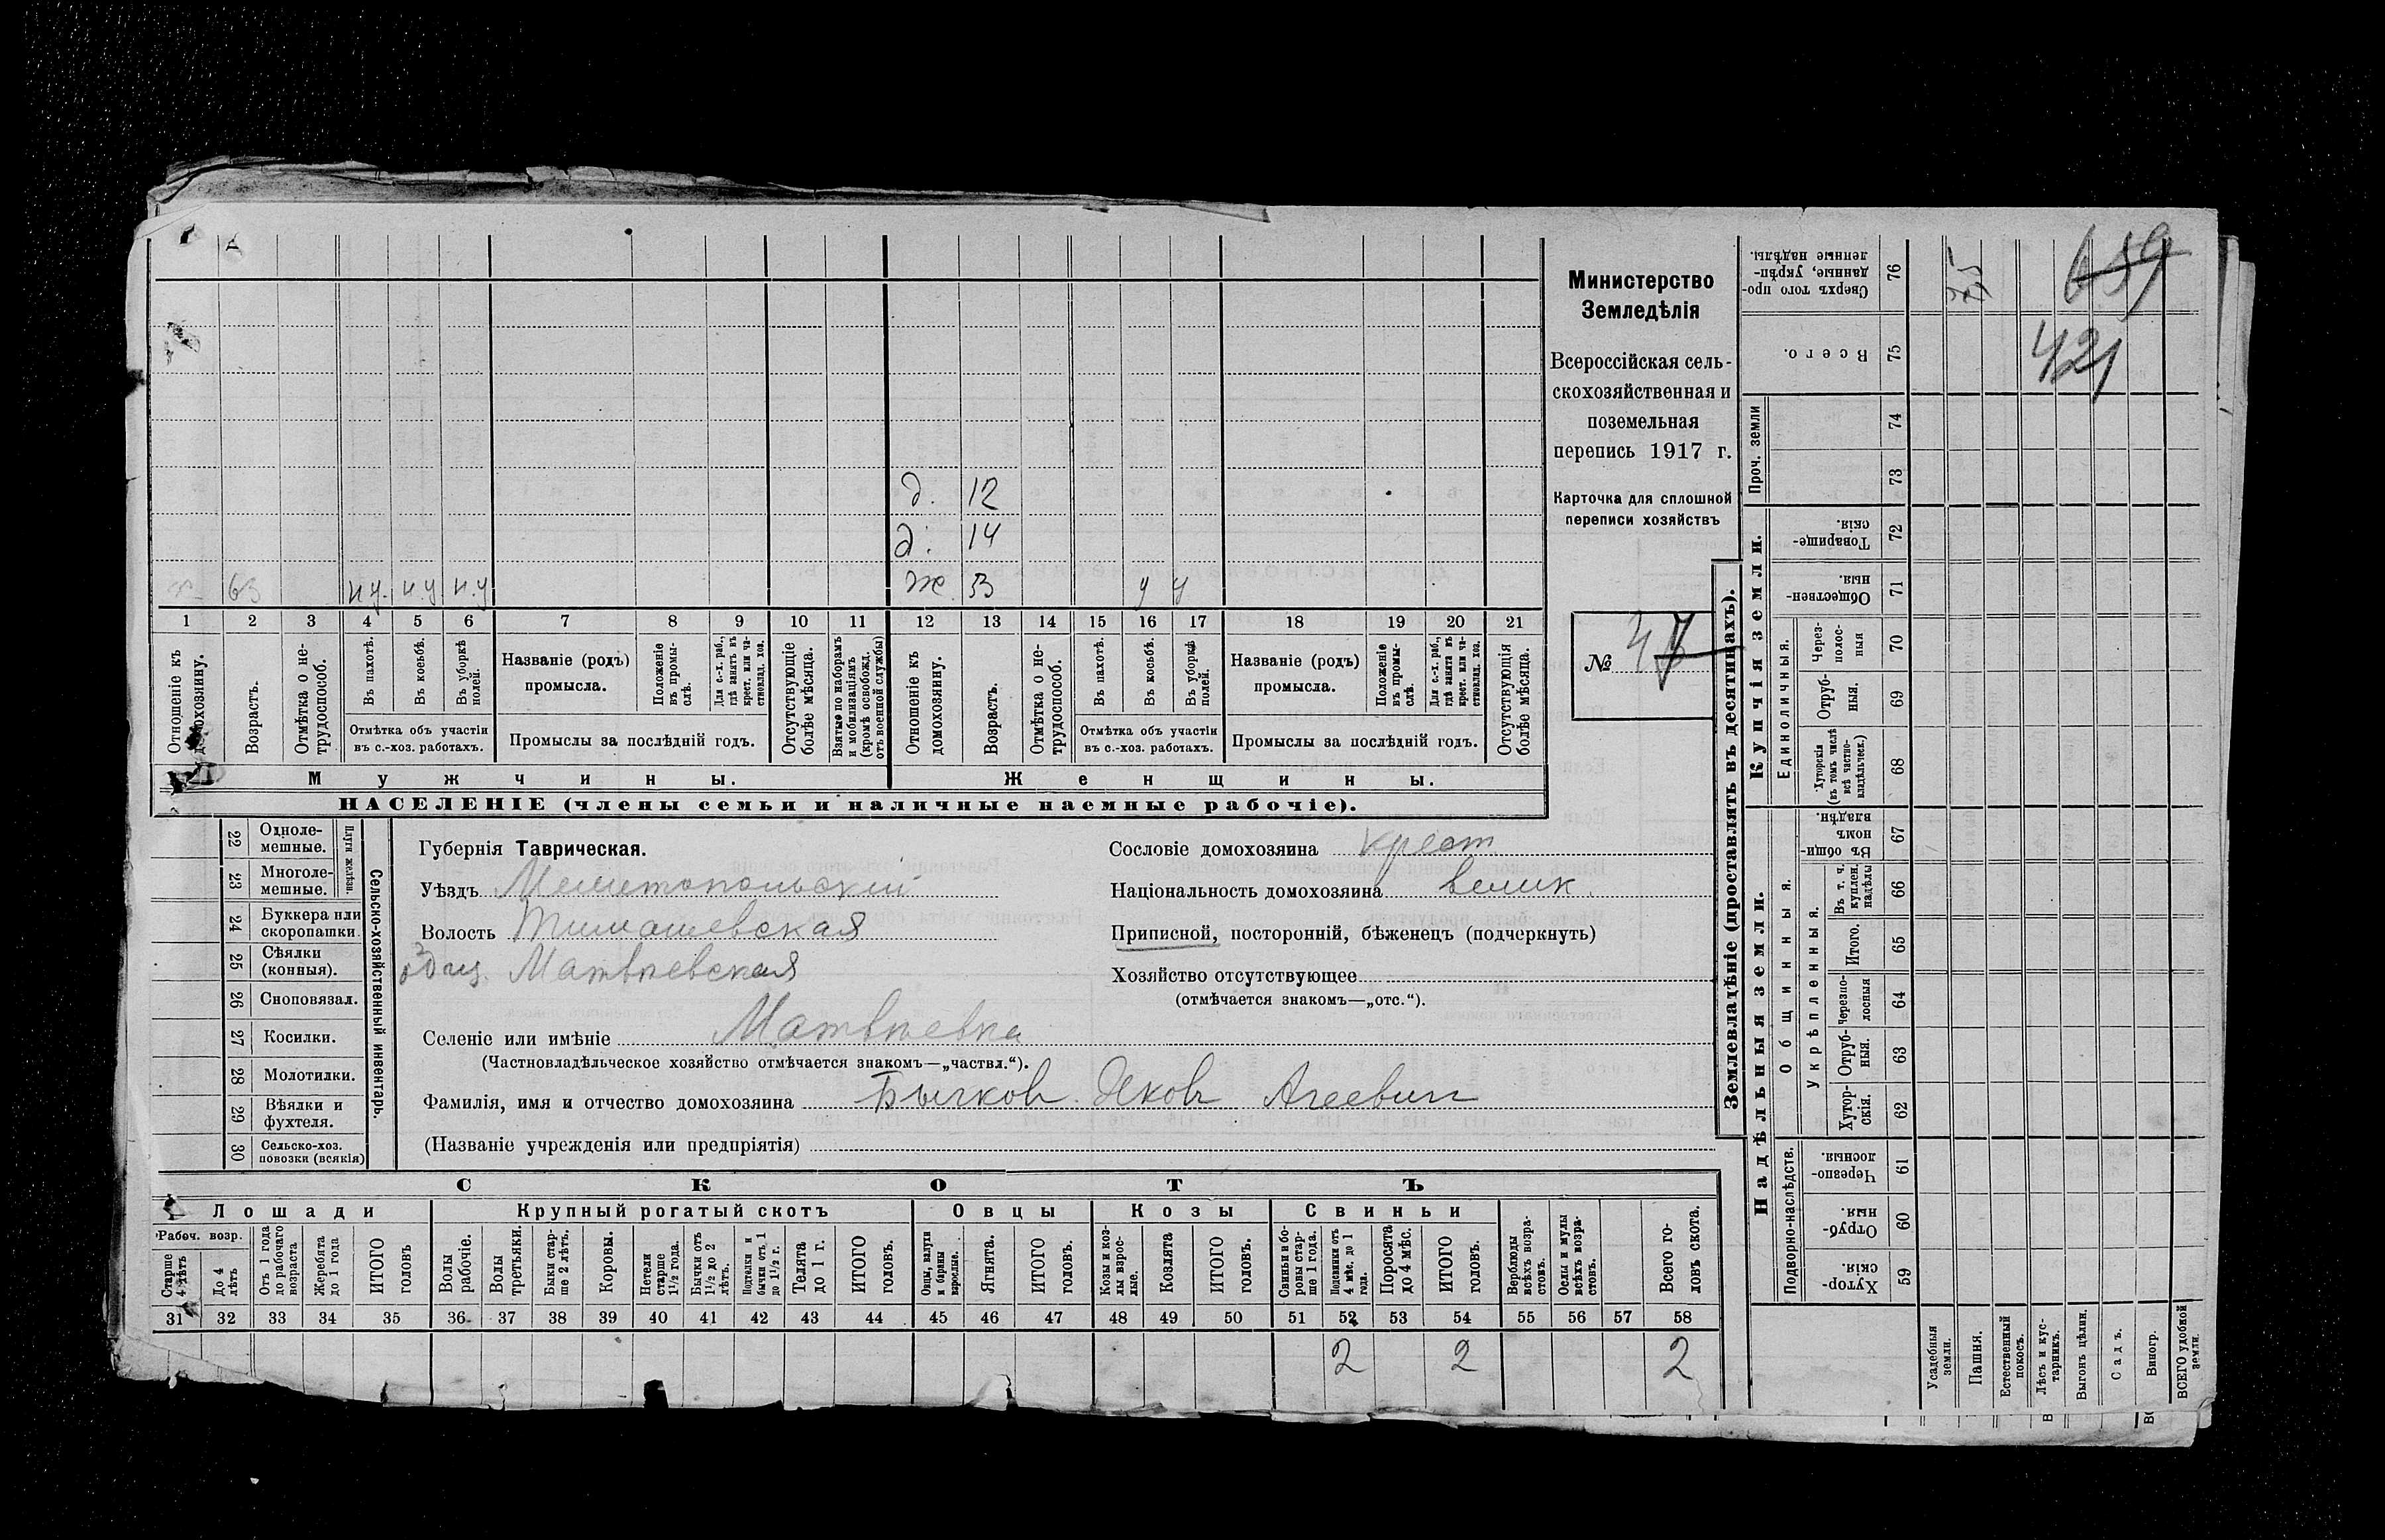 д. 12
д. 14
х. 63 н.у. н.у. н.у ж. 53 у у
1 2 3 4 5 6 7 8 9 10 11 12 13 14 15 16 17 18 19 20 21
Отношеніе къ домохозяину.
Возрастъ.
Отмѣтка о нетрудоспособ.
Въ пахотѣ.
Въ косьбѣ.
Въ уборкѣ полей.
Отмѣтка объ участіи
въ с.-хоз. работахъ.
Названіе (родъ)
промысла.
Положеніе въ промыслѣ.
Для с.-х. раб., гдѣ занятъ въ крест. или частновлад. хоз.
Промыслы за послѣдній годъ.
Отсутствующіе болѣе мѣсяца.
Взятые по наборамъ и мобилизаціямъ (кромѣ освобожд. отъ военной службы)
Отношеніе къ домохозяину.
Возрастъ.
Отмѣтка о нетрудоспособ.
Въ пахотѣ.
Въ косьбѣ.
Въ уборкѣ полей.
Отмѣтка объ участіи
въ с.-хоз. работахъ.
Названіе (родъ)
промысла.
Положеніе въ промыслѣ.
Для с.-х. раб., гдѣ занята въ крест. или частновлад. хоз.
Промыслы за послѣдній годъ.
Отсутствующія болѣе мѣсяца.
Мужчины.
Женщины.
НАСЕЛЕНІЕ (члены семьи и наличные наемные рабочіе).
Министерство
Земледѣлія
Всероссійская сель-
скохозяйственная и
поземельная
перепись 1917 г.
Карточка для сплошной
переписи хозяйствъ
№ 47
22 Одноле-
мешные.
23 Многоле-
мешные.
Плуги желѣзн.
24 Буккера или
скоропашки.
25 Сѣялки
(конныя).
26 Сноповязал.
27 Косилки.
28 Молотилки.
29 Вѣялки и
фухтеля.
30 Сельско-хоз.
повозки (всякія)
Сельско-хозяйственный инвентарь.
Губернія Таврическая.
Уѣздъ Мелитопольскій
Волость Тимашевская
Матвѣевская
Селеніе или имѣніе Матвѣевка
(Частновладѣльческое хозяйство отмѣчается знакомъ—„частвл.“).
Фамилія, имя и отчество домохозяина Бычковъ Яковъ Агеевич
(Названіе учрежденія или предпріятія)
Сословіе домохозяина крест
Національность домохозяина велик.
Приписной, посторонній, бѣженецъ (подчеркнуть)
Хозяйство отсутствующее
(отмѣчается знакомъ—„отс.“).
СКОТЪ
Лошади Крупный рогатый скотъ Овцы Козы Свиньи
Рабоч. возр.
Старше 4 лѣтъ
До 4 лѣтъ
Отъ 1 года до рабочаго возраста
Жеребята до 1 года
ИТОГО головъ
Волы рабочіе.
Волы третьяки.
Быки старше 2 лѣтъ.
Коровы.
Нетели старше 1½ года.
Бычки отъ 1½ до 2 лѣтъ.
Подтелки и бычки отъ 1 до 1½ г.
Телята до 1 г.
ИТОГО головъ.
Овцы, валухи и бараны взрослые.
Ягнята.
ИТОГО головъ.
Козы и козлы взрослые.
Козлята
ИТОГО головъ.
Свиньи и боровы старше 1 года.
Подсвинки отъ 4 мѣс. до 1 года.
Поросята до 4 мѣс.
ИТОГО головъ.
Верблюды всѣхъ возрастовъ.
Ослы и мулы всѣхъ возрастовъ.
Всего головъ скота.
31 32 33 34 35 36 37 38 39 40 41 42 43 44 45 46 47 48 49 50 51 52 53 54 55 56 57 58
2 2 2
Землевладѣніе (проставлять въ десятинахъ).
Сверхъ того проданные, укрѣпленные надѣлы. 76
Всего. 75
Проч. земли
74
73
Купчія земли.
Товарищескія. 72
Общественныя. 71
Единоличныя.
Черезполосныя 70
Отрубныя. 69
Хуторскія (въ томъ числѣ всѣ частновладѣльческ.) 68
Надѣльныя земли.
Общинныя.
Въ общинномъ владѣн. 67
Укрѣпленныя.
Въ т. ч. куплен. надѣлы 66
Итого. 65
Черезполосныя 64
Отрубныя. 63
Хуторскія. 62
Подворно-наслѣдств.
Черезполосныя. 61
Отрубныя. 60
Хуторскія. 59
Усадебныя земли.
Пашня.
Естественный покосъ.
Лѣсъ и кустарникъ.
Выгонъ цѣлин.
Садъ.
Виногр.
ВСЕГО удобной земли.
659
421